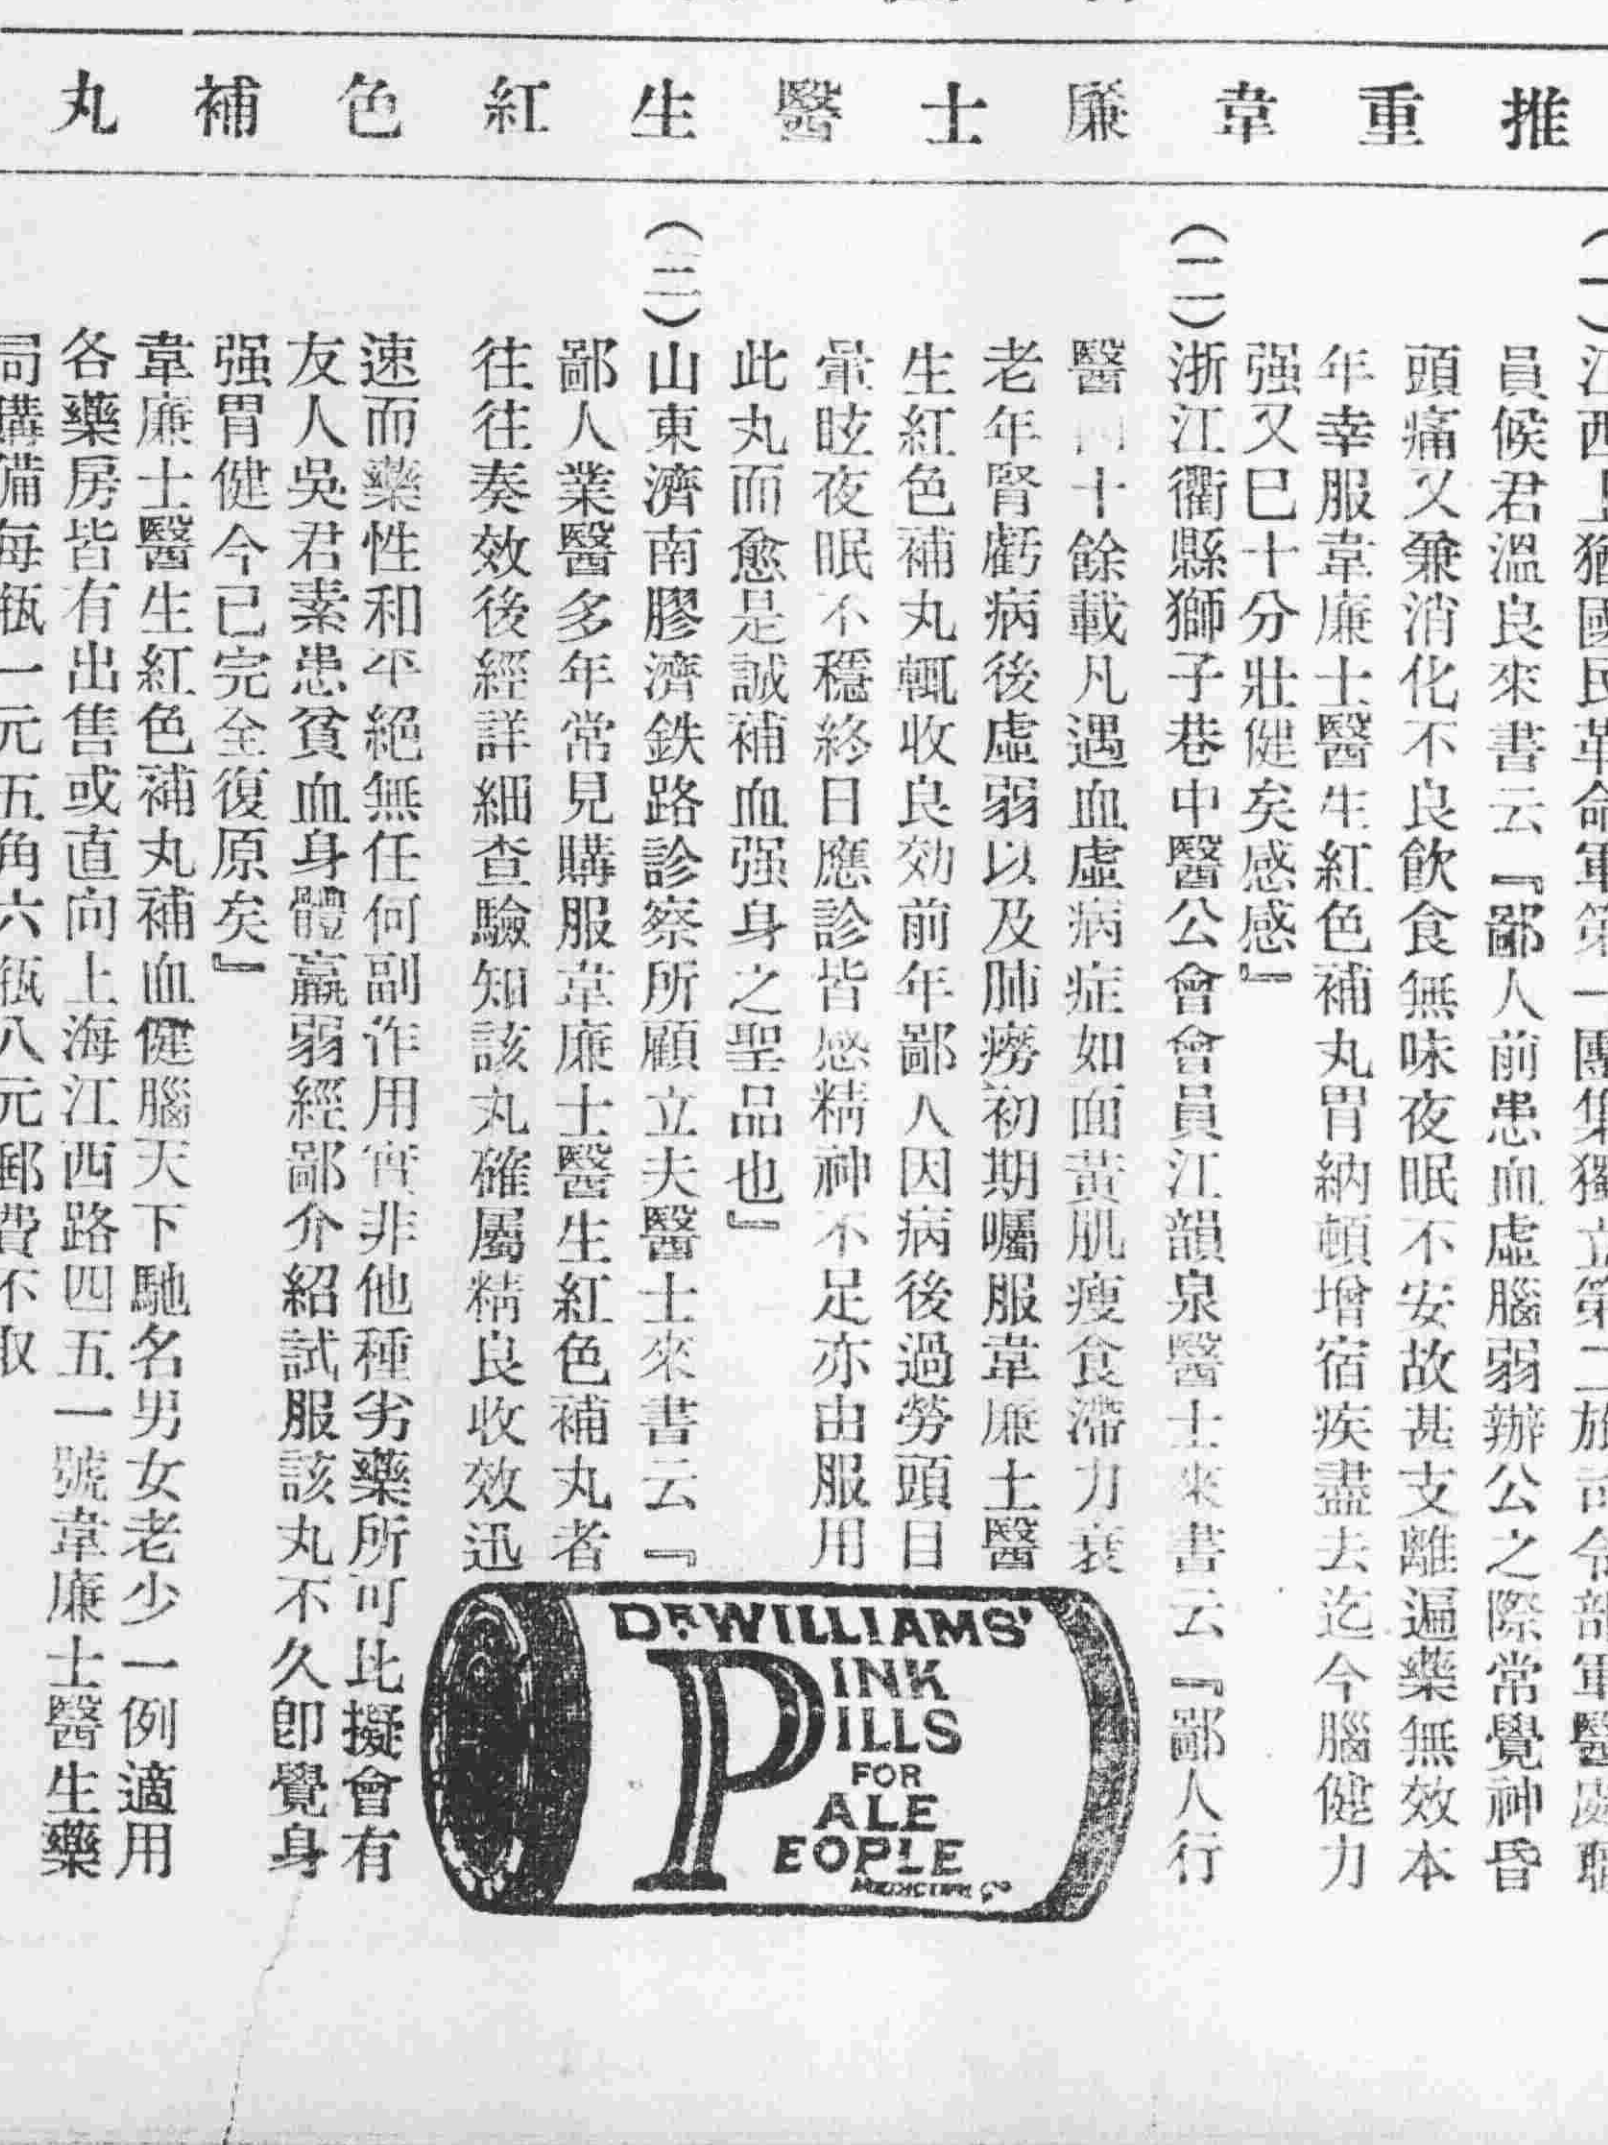 推重韋廉士醫生紅色補丸
(一)江西上猶國民革命軍第一團集獨立第二旅司令部軍醫處職
員候君溫良來書云『鄙人前患血虛腦弱辦公之際常覺神昏
頭痛又兼消化不良飲食無味夜夜眠不安故甚支離遍藥無效本
年幸服韋廉士醫生紅色補丸胃納頓增宿疾盡去迄今腦健力
强又巳十分壯健矣感感』
(二)浙江衢縣獅子巷中醫公會會員江韻泉醫士來書云『鄙人行
醫四十餘載凡遇血虛病症如面黃肌瘦食滯力衰
老年腎虧病後虛弱以及肺癆初期囑服韋廉士醫
生紅色補丸輒收良効前年鄙人因病後過勞頭目
暈眩夜眠不穩終日應診皆感精神不足亦由服用
此丸而愈是誠補血强身之聖品也』
(三)山東濟南膠濟鉄路診察所顧立夫醫士來書云『
鄙人業醫多年常見購服韋廉士醫生紅色補丸者
往往奏效後經詳細查驗知該丸確屬精良收效迅
速而藥性和平絕無任何副作用實非他種劣藥所可比擬會有
友人吳君素患貧血身體羸弱經鄙介紹試服該丸不久卽覺身
强胃健今已完全復原矣』
韋廉士醫生紅色補丸補血健腦天下馳名男女老少一例適用
各藥房皆有出售或直向上海江西路四五一號韋廉士醫生藥
局購備每瓶一元五角六瓶八元郵費不取
DR WILLIAMS'
PINK
PILLS
FOR
PALE
PEOPLE
MEDICINE Co